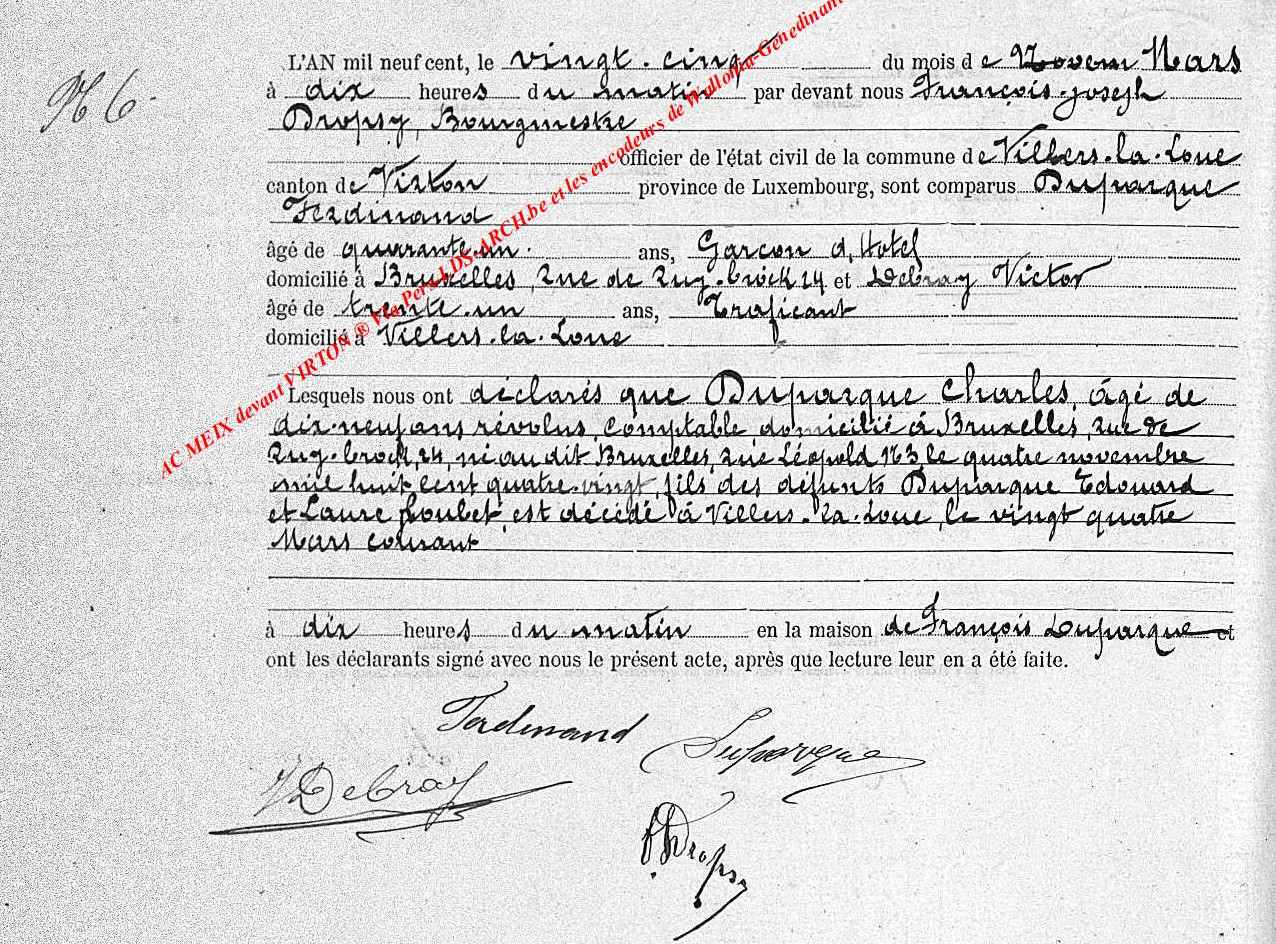 N 6
L'AN mil neuf cent, le vingt-cinq du mois de Novem Mars
à dix heures du matin par devant nous François-Joseph
Dropsy, Bourgmestre
officier de l'état civil de la commune de Villers-la-Loue
canton de Virton province de Luxembourg, sont comparus Duparque
Ferdinand
âgé de quarante-un ans, Garçon d'Hotel
domicilié à Bruxelles, rue de Ruysbrock 24 et Debray Victor
âgé de trente-un ans, Traficant
domicilié à Villers-la-Loue
Lesquels nous ont déclarés que Duparque Charles, âgé de
dix-neuf ans révolus, comptable, domicilié à Bruxelles, rue de
Ruysbrock, 24, né au dit Bruxelles, rue Léopold 163 le quatre novembre
mil huit cent quatre-vingt, fils des défunts Duparque Edouard
et Laure Loubet, est décédé à Villers-la-Loue, le vingt quatre
Mars courant
à dix heures du matin en la maison de François Duparque et
ont les déclarants signé avec nous le présent acte, après que lecture leur en a été faite.
Ferdinand Duparque
V Debray
Dropsy
AC MEIX devant VIRTON ® Via Pers LDS-ARCH.be et les encodeurs de Wallonia-Genedinant